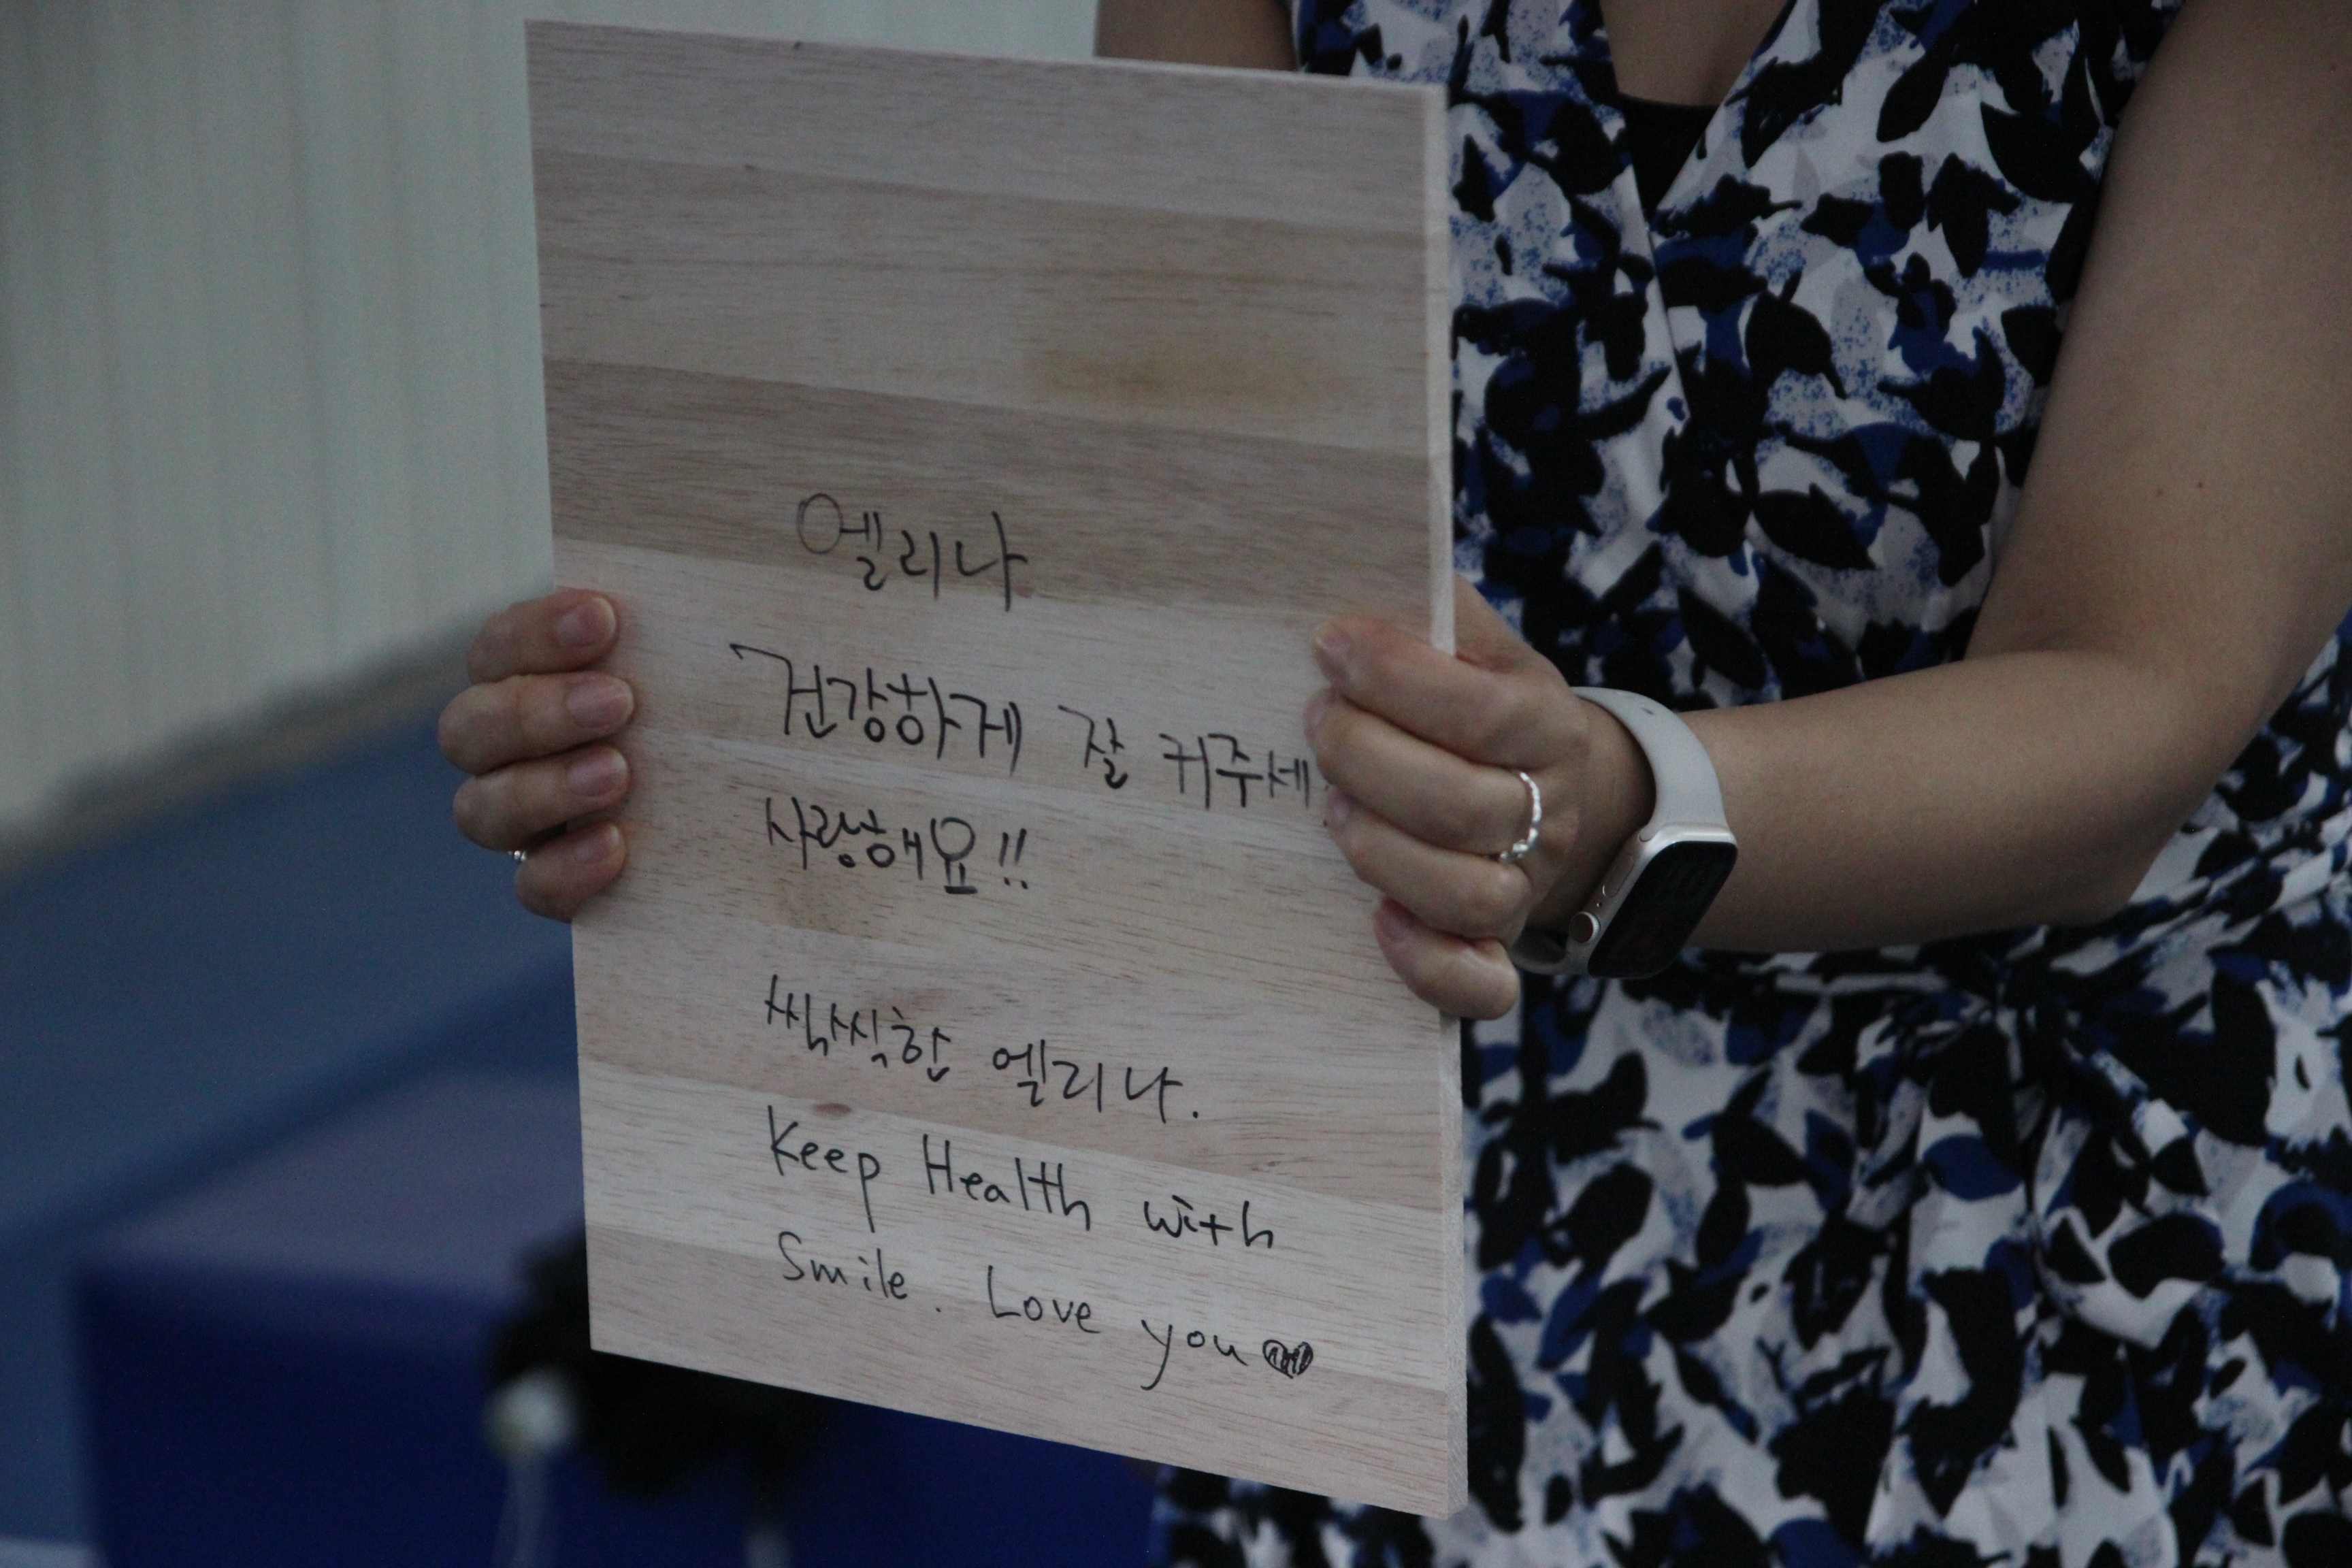 엘리나
건강하게 잘 커주세
사랑해요!!
씩씩한 엘리나.
Keep Health with
Smile. Love you